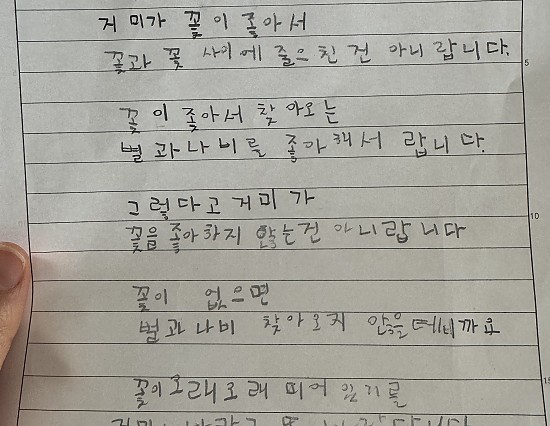 거미가 꽃이 좋아서
꽃과 꽃 사이에 줄은 친 건 아니랍니다.
5
꽃이 좋아서 찾아오는
벌과 나비를 좋아해서 랍니다.
그렇다고 거미가
10
꽃음 좋아하지 않는건 아니랍니다
꽃이 없으면
벌과 나비 찾아오지 않을테니까요
꽃이 오래오래 피어 있기를